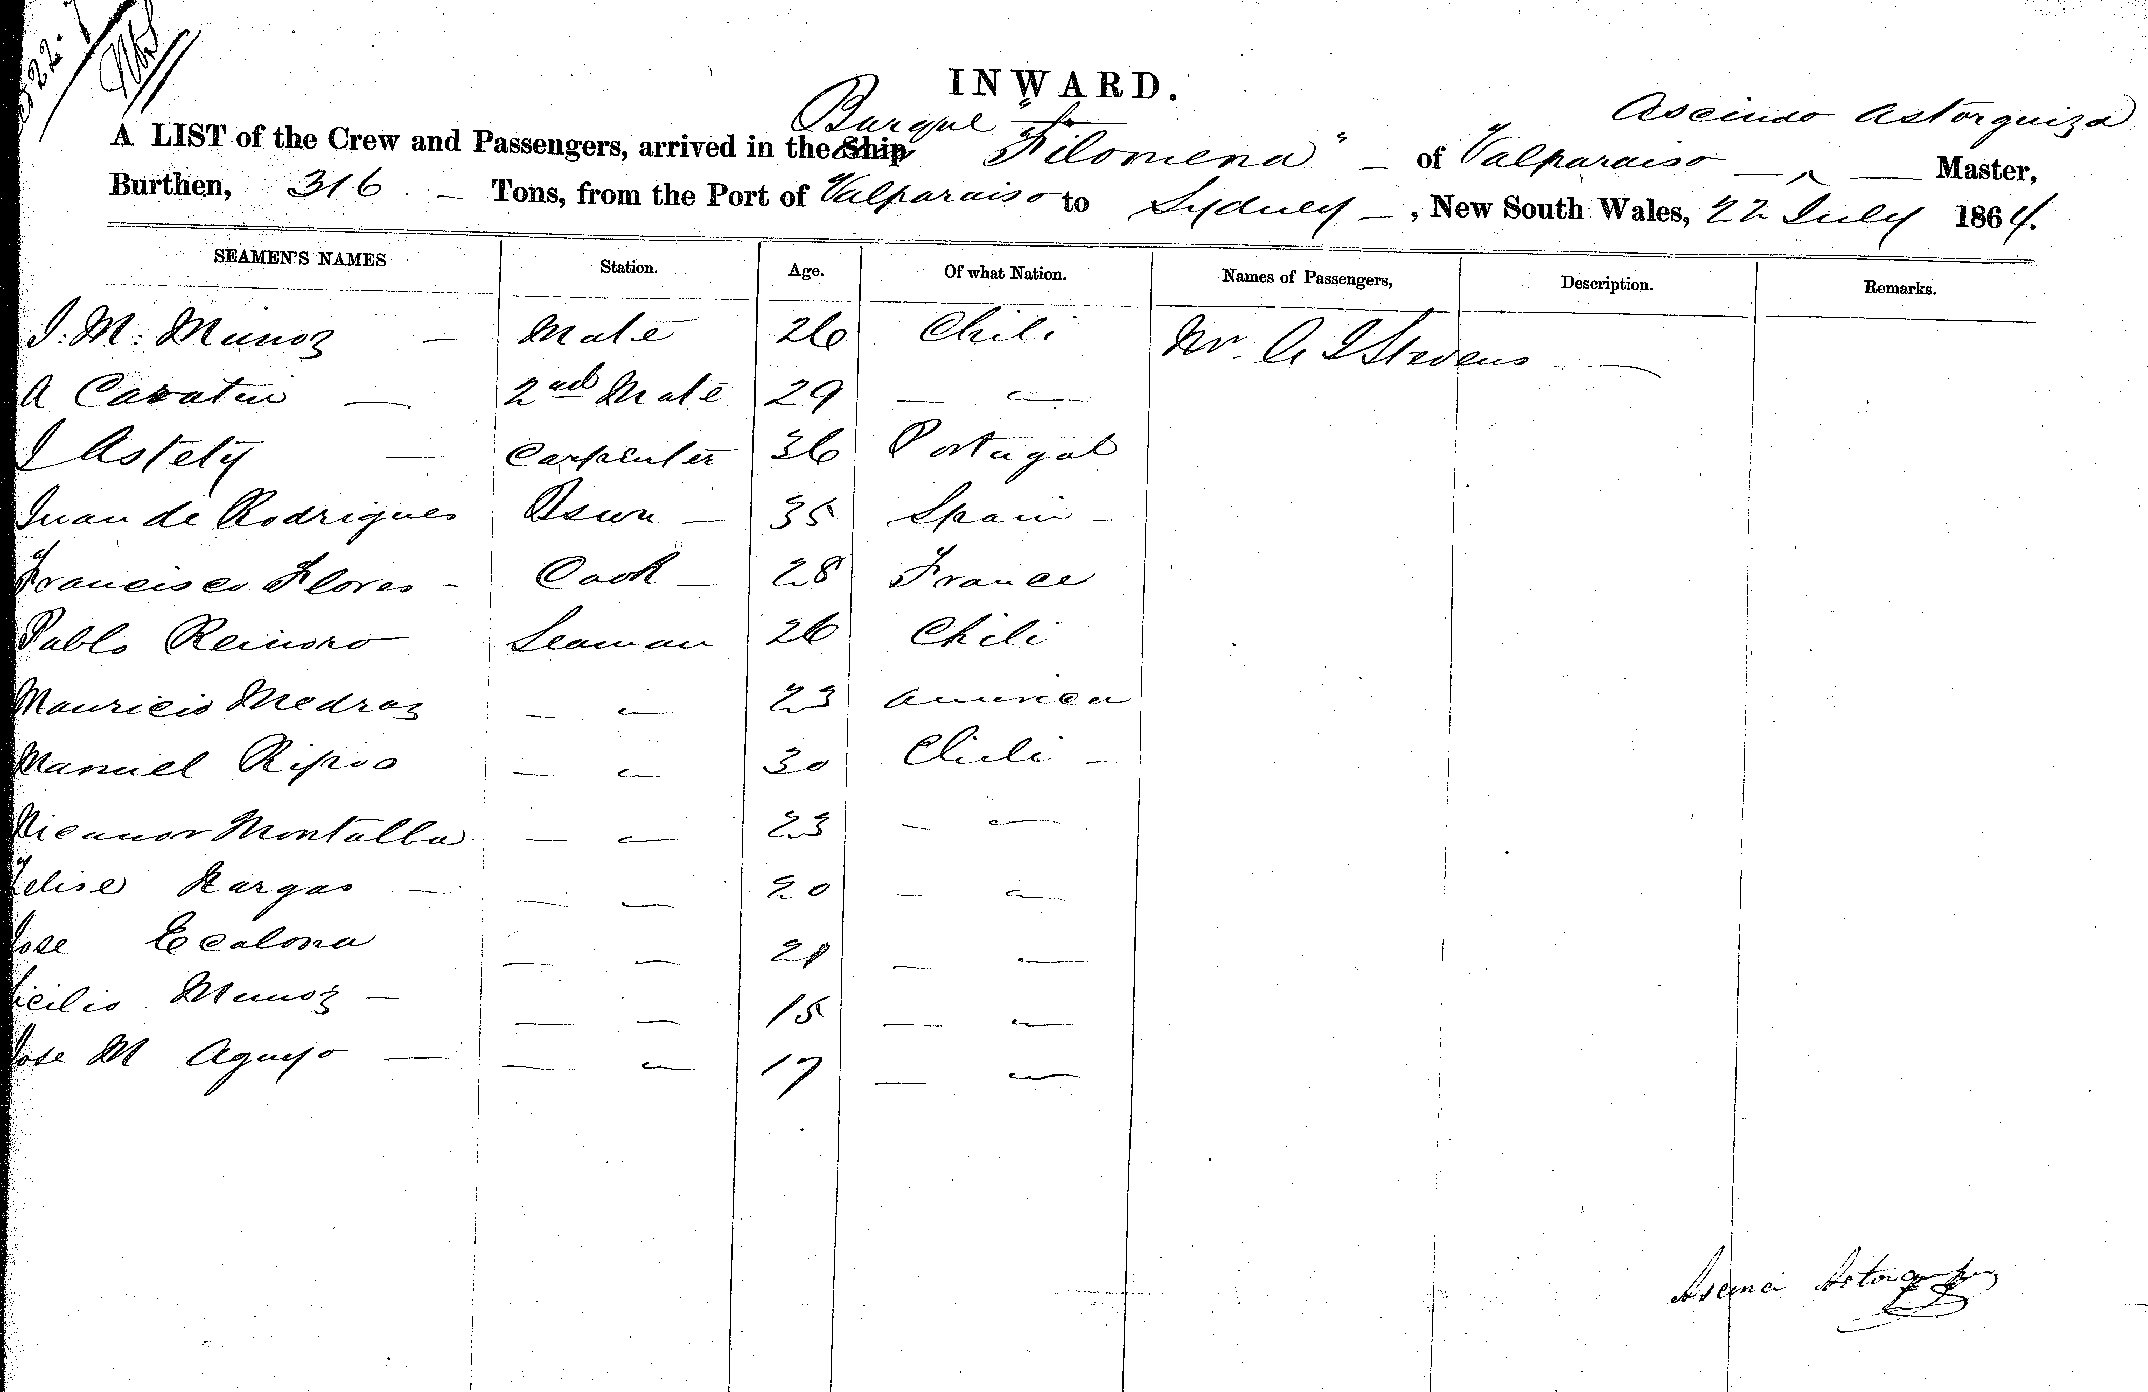 INWARD.
Ascindo Astorquiza
A LIST of the Crew and Passengers, arrived in the Ship Barque "Filomena" – of Valparaiso – ^ – Master,
Burthen, 316 – Tons, from the Port of Valparaiso to Sydney – , New South Wales, 22 July 1864.
SEAMEN'S NAMES Station. Age. Of what Nation. Names of Passengers, Description. Remarks.
J. M. Munoz — Mate 26 Chili Mr. A J Stevens —
A Cavatin — 2nd Mate 29 — "
J Astety — Carpenter 36 Portugal
Juan de Rodrigues Bswn — 35 Spain –
Francisco Flores – Cook — 28 France
Pablo Reinoro Seaman 26 Chili
Mauricio Medraz — " 23 America
Manuel Ripos — " 30 Chili –
Nicanor Montalba — " 23 — "
Felise Vargas — — " 20 — "
Jose Ecalona — " 21 — "
Munoz — — " 15 — "
Jose M Aguyo — — " 17 — "